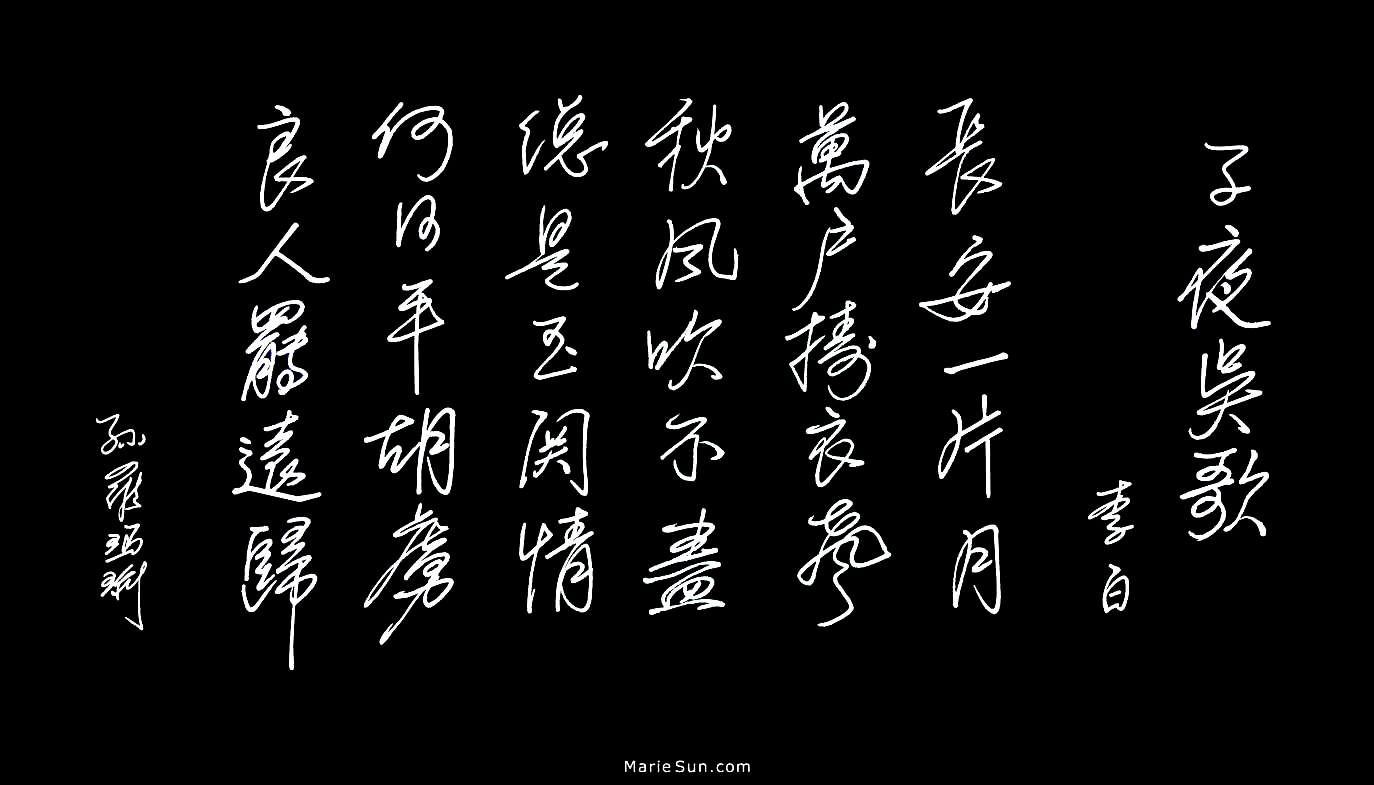 子夜吳歌
李白
長安一片月
萬戶擣衣聲
秋風吹不盡
總是玉関情
何日平胡虜
良人罷遠歸
孫羅瑪琍
MarieSun.com